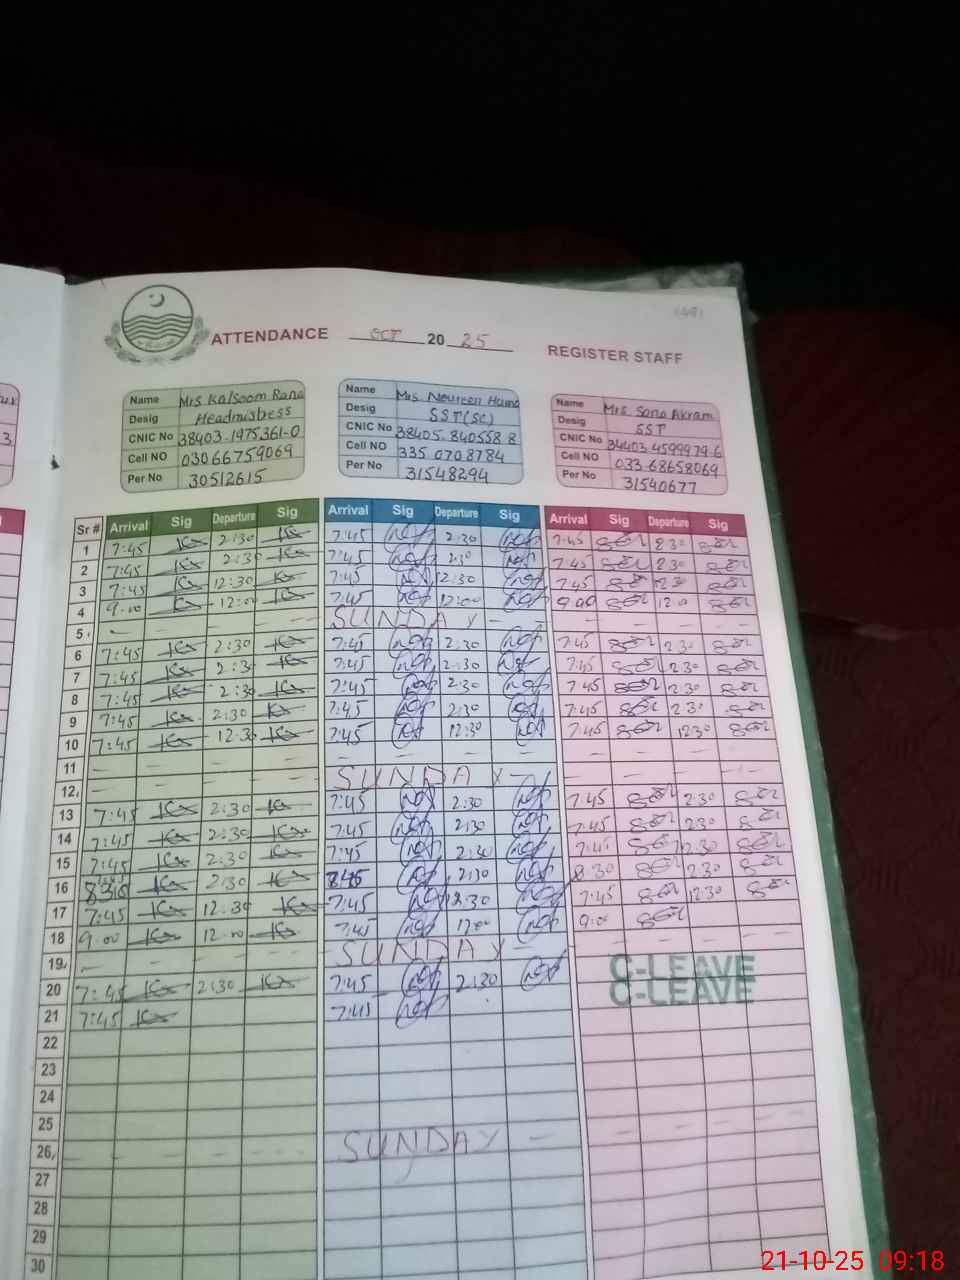 ATTENDANCE OCT 20 25 REGISTER STAFF
Name Mrs Kalsoom Rana
Desig Headmistress
CNIC No 38403-1975361-0
Cell NO 03066759069
Per No 30512615
Name Mrs Noureen
Desig SST(SC)
CNIC No 38405-840558-8
Cell NO 335 0708784
Per No 31548294
Name Mrs. Sana Akram
Desig SST
CNIC No 34403-4599979-6
Cell NO 033-68658069
Per No 31540677
Sr # Arrival Sig Departure Sig Arrival Sig Departure Sig Arrival Sig Departure Sig
1 7:45 2:30 7:45 2:30 7:45 2:30
2 7:45 2:30 7:45 2:30 7:45 2:30
3 7:45 12:30 7:45 12:30 7:45 12:30
4 9:00 12:00 7:45 12:00 9:00 12:0
5 SUNDAY
6 7:45 2:30 7:45 2:30 7:45 2:30
7 7:45 2:30 7:45 2:30 7:45 2:30
8 7:45 2:30 7:45 2:30 7:45 2:30
9 7:45 2:30 7:45 2:30 7:45 2:30
10 7:45 12:30 7:45 12:30 7:45 12:30
11
12 SUNDAY
13 7:45 2:30 7:45 2:30 7:45 2:30
14 7:45 2:30 7:45 2:30 7:45 2:30
15 7:45 2:30 7:45 2:30 7:45 2:30
16 830 2:30 845 2:30 8:30 2:30
17 7:45 12:30 7:45 12:30 7:45 12:30
18 9:00 12:00 7:45 12:00 9:00
19 SUNDAY
20 7:45 2:30 7:45 2:30 C-LEAVE
21 7:45 7:45 C-LEAVE
22
23
24
25
26 SUNDAY
27
28
29
30
21-10-25 09:18